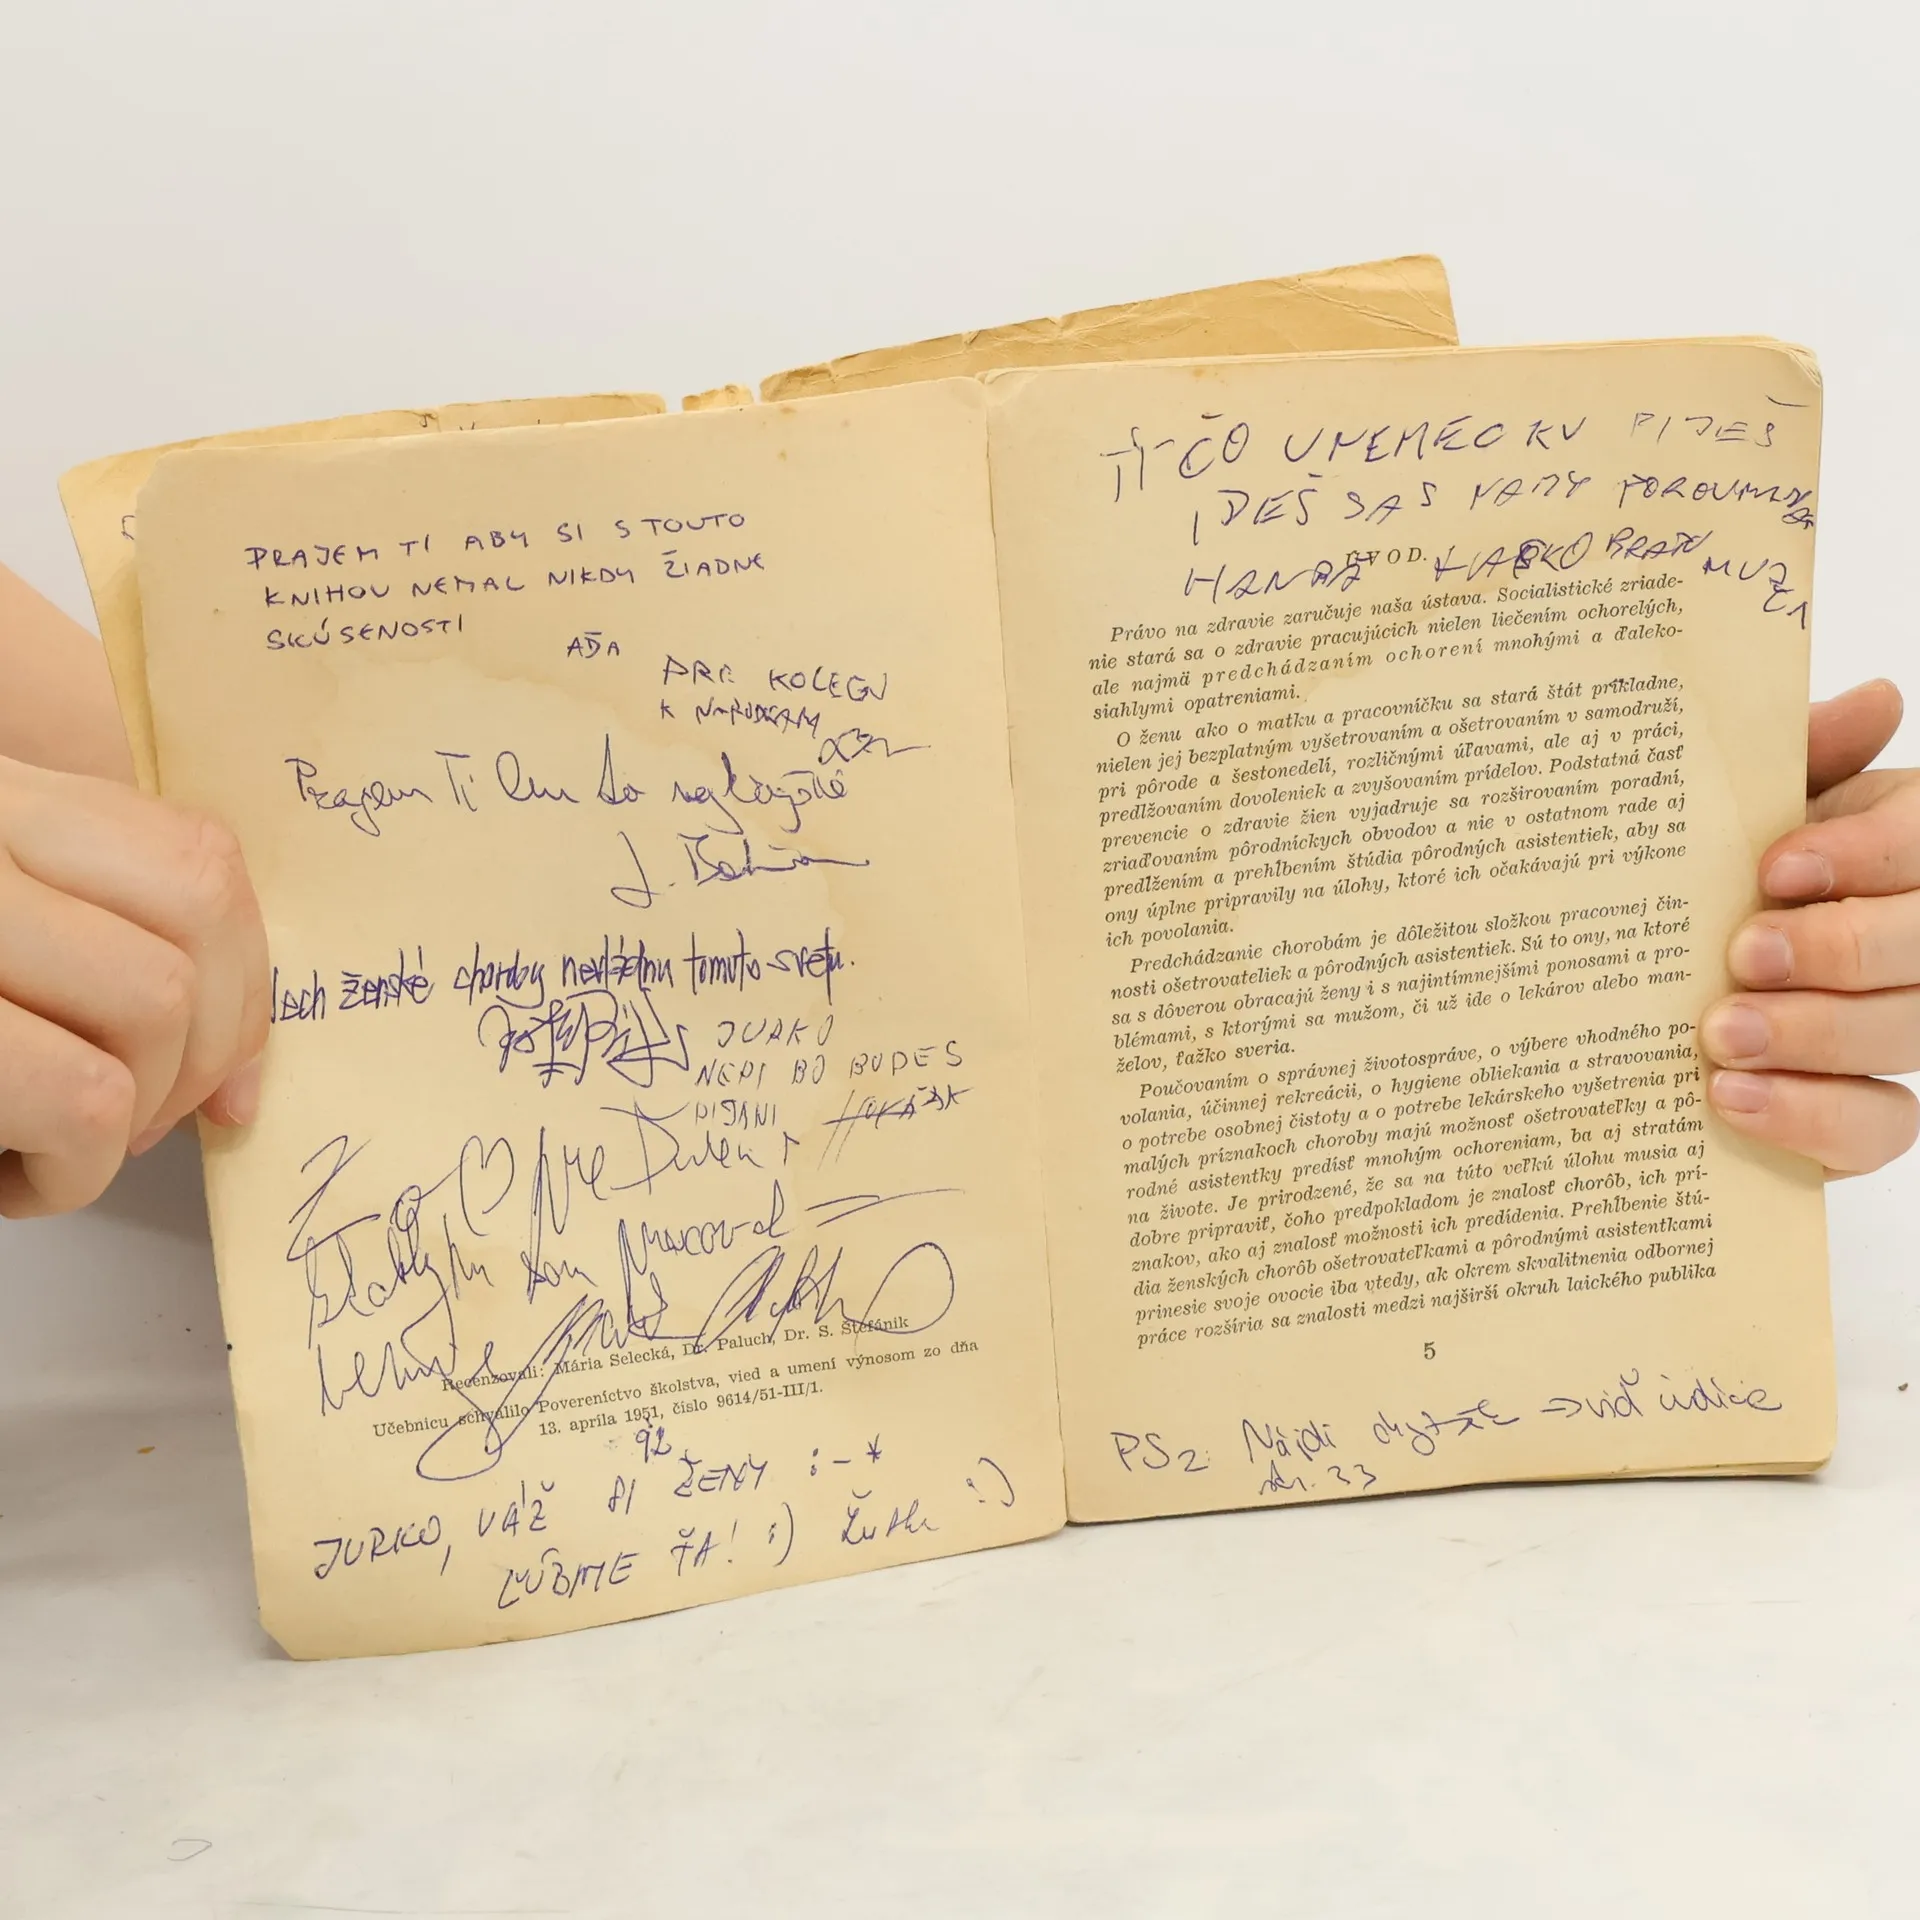 PRAJEM TI ABY SI S TOUTO
KNIHOU NEMAL NIKDY ŽIADNE
SKÚSENOSTI
AĎA
PRE KOLEGU
K
Prajem Ti len to najlepšie
J.
ženské choroby nevládnu tomuto svetu.
JURKO
NEPI BO BUDES
PIJANI
som pracoval
Recenzovali: Mária Selecká, Dr. Paluch, Dr. S. Štefánik
Učebnicu schválilo Povereníctvo školstva, vied a umení výnosom zo dňa
13. apríla 1951, číslo 9614/51-III/1.
92
JURKO, VÁŽ SI ŽENY :-*
ĽÚBIME ŤA! :) Zuzka :)
TY ČO U NEMECKU PIJEŠ
IDEŠ SA S NAMY
ÚVOD.
Právo na zdravie zaručuje naša ústava. Socialistické zriade-
nie stará sa o zdravie pracujúcich nielen liečením ochorelých,
ale najmä predchádzaním ochorení mnohými a ďaleko-
siahlymi opatreniami.
O ženu ako o matku a pracovníčku sa stará štát príkladne,
nielen jej bezplatným vyšetrovaním a ošetrovaním v samodruží,
pri pôrode a šestonedelí, rozličnými úľavami, ale aj v práci,
predlžovaním dovoleniek a zvyšovaním prídelov. Podstatná časť
prevencie o zdravie žien vyjadruje sa rozširovaním poradní,
zriaďovaním pôrodníckych obvodov a nie v ostatnom rade aj
predĺžením a prehĺbením štúdia pôrodných asistentiek, aby sa
ony úplne pripravily na úlohy, ktoré ich očakávajú pri výkone
ich povolania.
Predchádzanie chorobám je dôležitou složkou pracovnej čin-
nosti ošetrovateliek a pôrodných asistentiek. Sú to ony, na ktoré
sa s dôverou obracajú ženy i s najintímnejšími ponosami a pro-
blémami, s ktorými sa mužom, či už ide o lekárov alebo man-
želov, ťažko sveria.
Poučovaním o správnej životospráve, o výbere vhodného po-
volania, účinnej rekreácii, o hygiene obliekania a stravovania,
o potrebe osobnej čistoty a o potrebe lekárskeho vyšetrenia pri
malých príznakoch choroby majú možnosť ošetrovateľky a pô-
rodné asistentky predísť mnohým ochoreniam, ba aj stratám
na živote. Je prirodzené, že sa na túto veľkú úlohu musia aj
dobre pripraviť, čoho predpokladom je znalosť chorôb, ich prí-
znakov, ako aj znalosť možnosti ich predídenia. Prehĺbenie štú-
dia ženských chorôb ošetrovateľkami a pôrodnými asistentkami
prinesie svoje ovocie iba vtedy, ak okrem skvalitnenia odbornej
práce rozšíria sa znalosti medzi najširší okruh laického publika
5
PS2: Nájdi → viď
str. 33